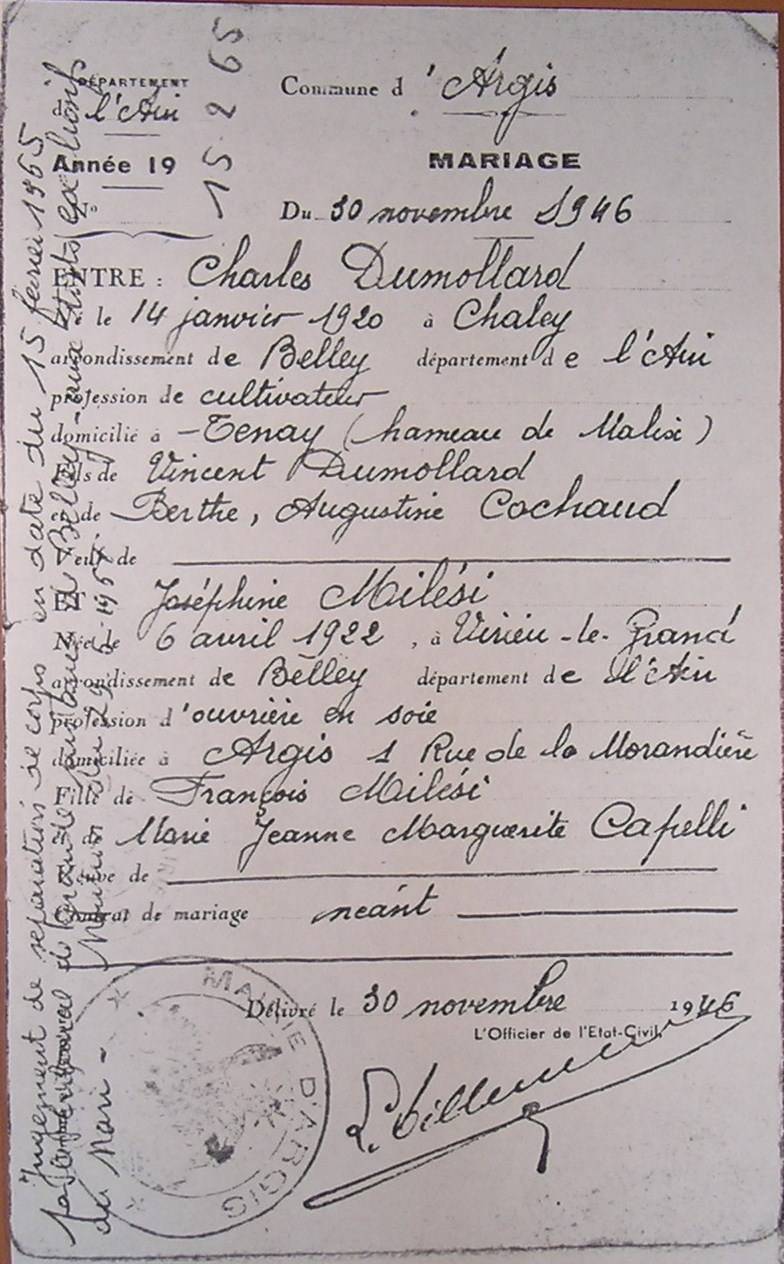 DÉPARTEMENT
de l'Ain
Année 19
N°
Commune d'Argis
MARIAGE
Du 30 novembre 1946
ENTRE : Charles Dumollard
Né le 14 janvier 1920 à Chaley
arrondissement de Belley département de l'Ain
profession de cultivateur
domicilié à Tenay (hameau de Malix)
Fils de Vincent Dumollard
et de Berthe, Augustine Cochaud
Veuf de
Et Joséphine Milési
Née le 6 avril 1922, à Virieu-le-Grand
arrondissement de Belley département de l'Ain
profession d'ouvrière en soie
domiciliée à Argis 1 Rue de la Morandière
Fille de François Milési
et de Marie Jeanne Marguerite Capelli
Veuve de
Contrat de mariage néant
Délivré le 30 novembre 1946
L'Officier de l'Etat-Civil,
MAIRIE D'ARGIS
15 2 65
Jugement de séparation de corps en date du 15 février 1965
de Grande Instance de Belley - aux torts
du Mari -